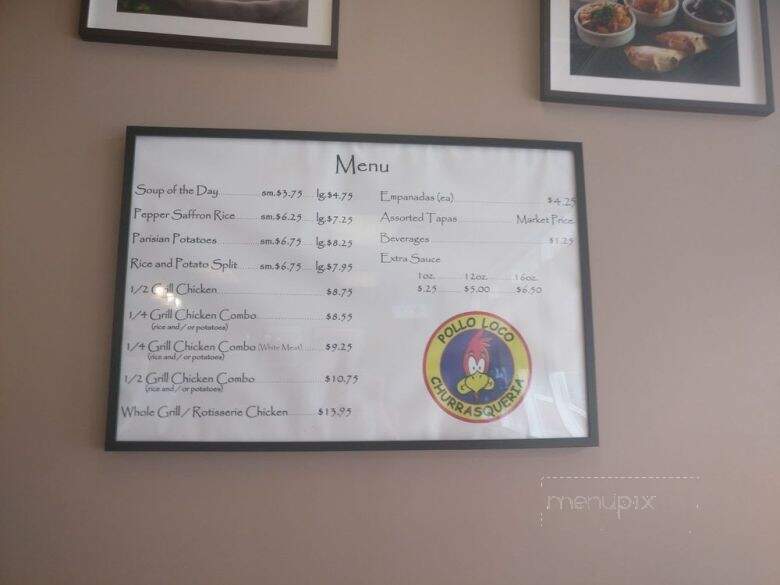 Menu
Soup of the Day sm.$3.75 lg.$4.75
Pepper Saffron Rice sm.$6.25 lg.$7.25
Parisian Potatoes sm.$6.75 lg.$8.25
Rice and Potato Split sm.$6.75 lg.$7.95
1/2 Grill Chicken $8.75
1/4 Grill Chicken Combo $8.55
(rice and/or potatoes)
1/4 Grill Chicken Combo (White Meat) $9.25
(rice and/or potatoes)
1/2 Grill Chicken Combo $10.75
(rice and/or potatoes)
Whole Grill/Rotisserie Chicken $13.95
Empanadas (ea) $4.25
Assorted Tapas Market Price
Beverages $1.25
Extra Sauce
1oz. 12oz. 16oz.
$.25 $5.00 $6.50
POLLO LOCO
CHURRASQUERIA
menupix